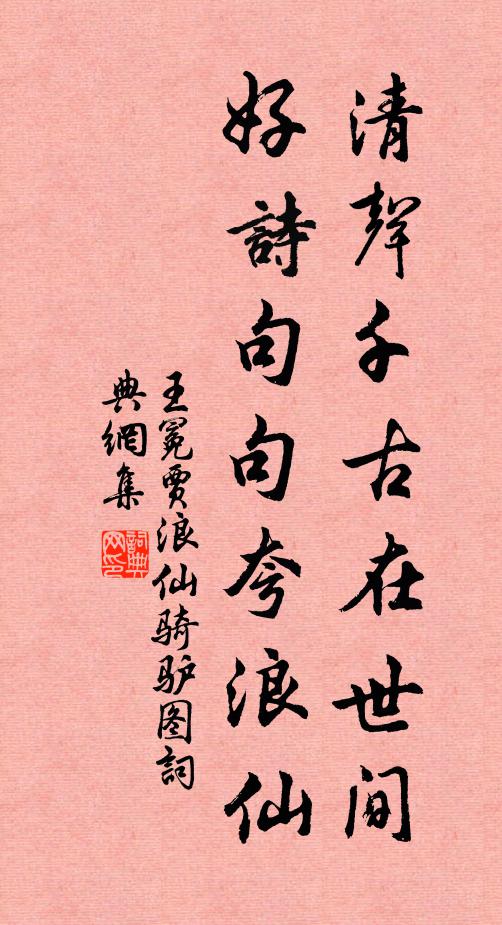 清聲千古在世间
好詩句句夸浪仙
王冕贾浪仙骑驴图詞
典網集
詞典网印